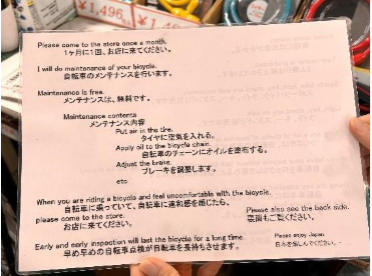 ¥1,496
¥1
Please come to the store once a month.
1ヶ月に1回、お店に来てください。
I will do maintenance of your bicycle.
自転車のメンテナンスを行います。
Maintenance is free.
メンテナンスは、無料です。
Maintenance contents
メンテナンス内容
Put air in the tire.
タイヤに空気を入れる。
Apply oil to the bicycle chain.
自転車のチェーンにオイルを塗布する。
Adjust the brake.
ブレーキを調整します。
etc
When you are riding a bicycle and feel uncomfortable with the bicycle,
自転車に乗っていて、自転車に違和感を感じたら、
please come to the store.
お店に来てください。
Please also see the back side.
裏面もご覧ください。
Early and early inspection will last the bicycle for a long time.
早め早めの自転車点検が自転車を長持ちさせます。
Please enjoy Japan.
日本を楽しんでください。